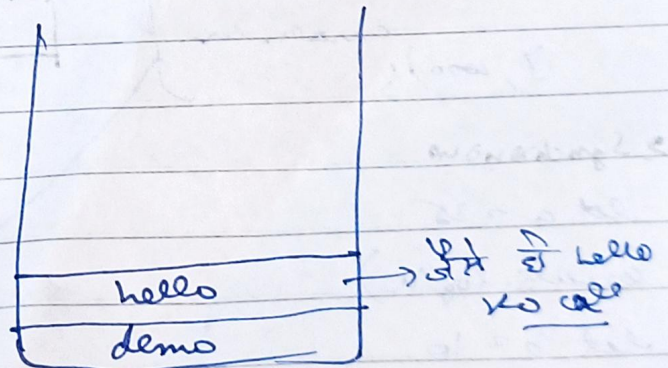 hello
demo
जैसे ही hello
ko call